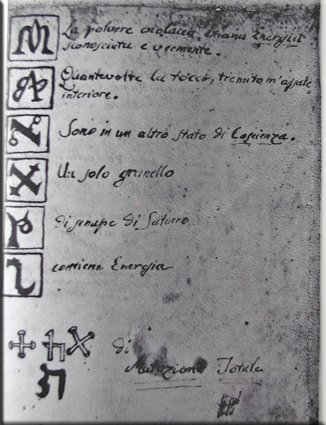 La polvere violacea, emana Energia
sconosciuta e veemente.
Quantevolte la tocco, tremito m'assale
interiore.
Sono in un altro stato di Coscienza.
Un solo granello
di senape di Saturno
contiene Energia
di
Mutazione Totale